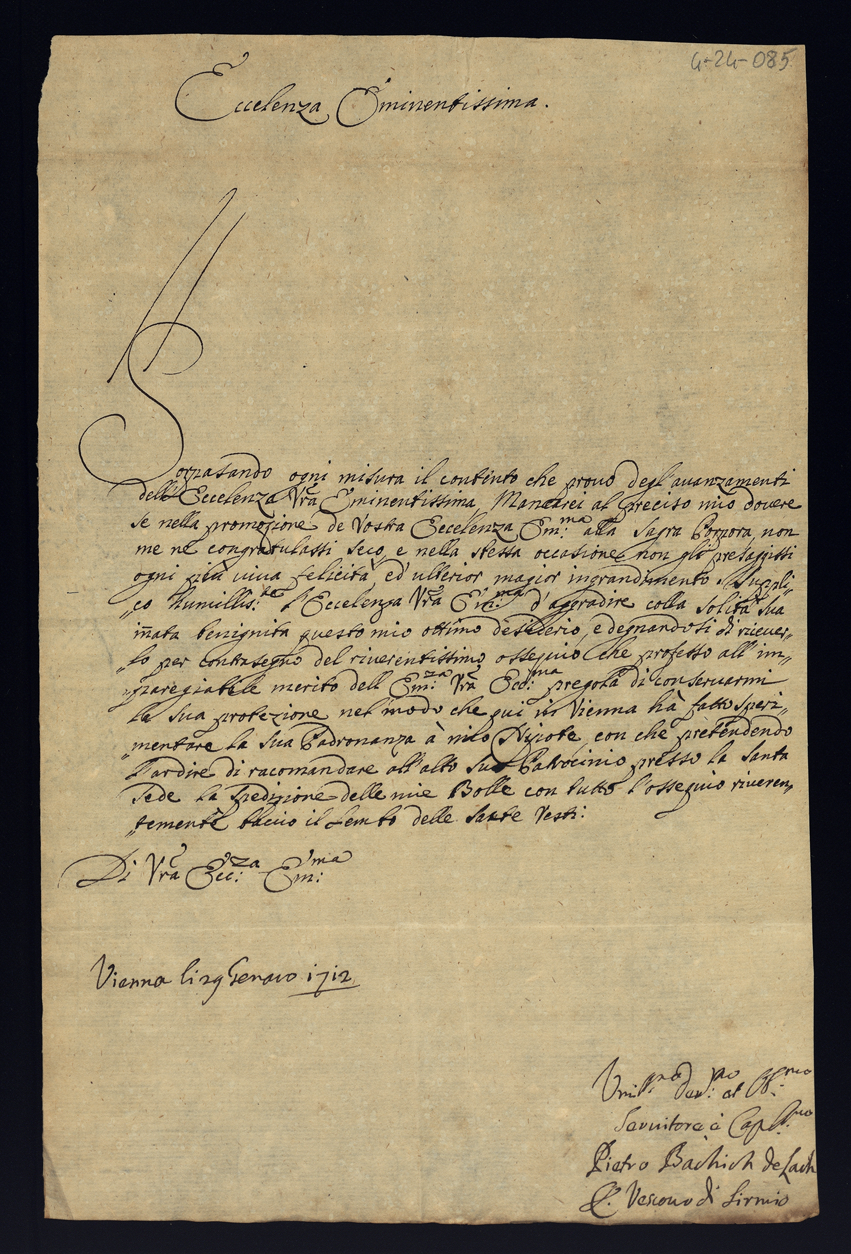 4-24-085
Eccelenza Eminentissima.
Sorpasando ogni misura il contento che provo degl'avanzamenti
dell'Eccelenza Vrã Eminentissima, Mancarei al preciso mio dovere
se nella promozione de Vostra Eccelenza Em:ma alla Sagra Porpora, non
me ne congratulassi seco, e nella stessa occasione non gli presaggissi
ogni più viva felicità, ed'ulterior magior ingrandimento. Suppli„
„co humillis:te l'Eccelenza Vrã Em:ma d'aggradire colla solita sua
iñata benignita questo mio ottimo desiderio, e degnandosi di riever„
„lo per contrasegno del riverentissimo ossequio che professo all'im„
„paregiabile merito dell Em:za Vrã Ecc:ma pregola di conservarmi
la sua protezione nel modo che qui in Vienna hà fatto speri„
„mentare la sua Padronanza à mio Nipote, con che prètendendo
l'ardire di racomandare all'alto suo Patrocinio presso la Santa
Sede la Spedizione delle mie Bolle con tutto l'ossequio riveren„
„temente baccio il Lembo delle Sante Vesti:
Di Vrã Ecc:za Em:ma
Vienna li 29 Genaro 1712
Umil:mo Dev:mo et Obl:mo
Servitore è Capl:no
Pietro Bachich de Lach
E. Vescovo di Sirmio